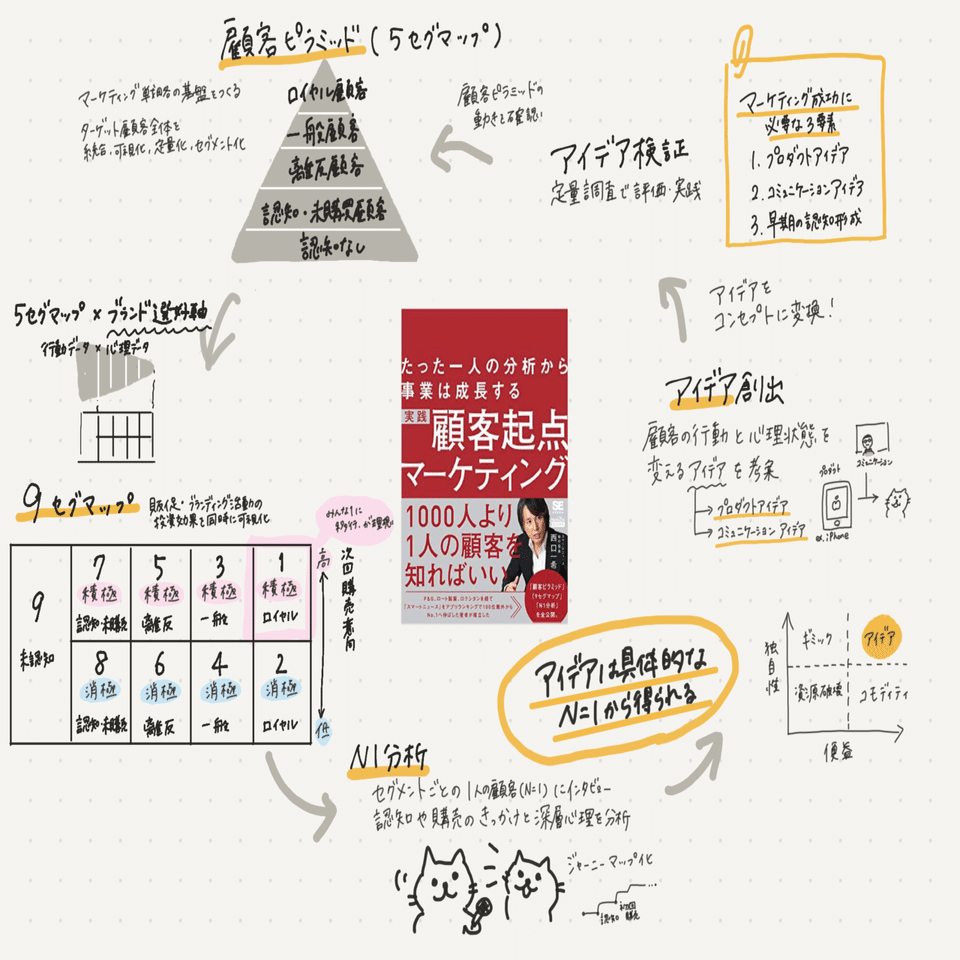 顧客ピラミッド(5セグマップ)
マーケティング戦略の基盤をつくる
ターゲット顧客全体を
統合、可視化、定量化、セグメント化
ロイヤル顧客
一般顧客
離反顧客
認知・未購買顧客
認知なし
顧客ピラミッドの
動きを確認!
アイデア検証
定量調査で評価・実践
マーケティング成功に
必要な3要素
1. プロダクトアイデア
2. コミュニケーションアイデア
3. 早期の認知形成
アイデアを
コンセプトに変換!
5セグマップ × ブランド選好軸
行動データ × 心理データ
9セグマップ
販促・ブランディング活動の
投資効果を同時に可視化
みんな1に
移行、が理想
9
未認知
7
積極
認知・未購買
5
積極
離反
3
積極
一般
1
積極
ロイヤル
8
消極
認知・未購買
6
消極
離反
4
消極
一般
2
消極
ロイヤル
高
次回購買意向
低
たった一人の分析から
事業は成長する
実践
顧客起点
マーケティング
SE
1000人より
1人の顧客を
知ればいい
西口一希
P&G、ロート製薬、ロクシタンを経て
「スマートニュース」をアプリランキングで100位圏外から
No.1へ伸ばした著者が確立した
「顧客ピラミッド」
「9セグマップ」
「N1分析」
を全公開。
アイデア創出
顧客の行動と心理状態を
変えるアイデアを考案
プロダクトアイデア
コミュニケーションアイデア
プロダクト
ex. iPhone
コミュニケーション
アイデアは具体的な
N=1から得られる
独自性
ギミック
アイデア
資源破壊
コモディティ
便益
N1分析
セグメントごとの1人の顧客(N=1)にインタビュー
認知や購買のきっかけと深層心理を分析
ジャーニーマップ化
認知
初回
購買